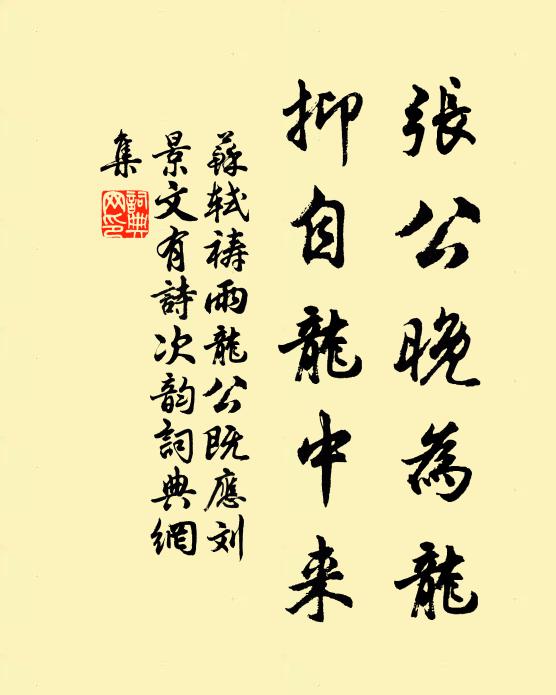 張公晚為龍
抑自龍中来
蘇轼禱雨龍公既應刘
景文有詩次韵詞典網
集
詞典
网印